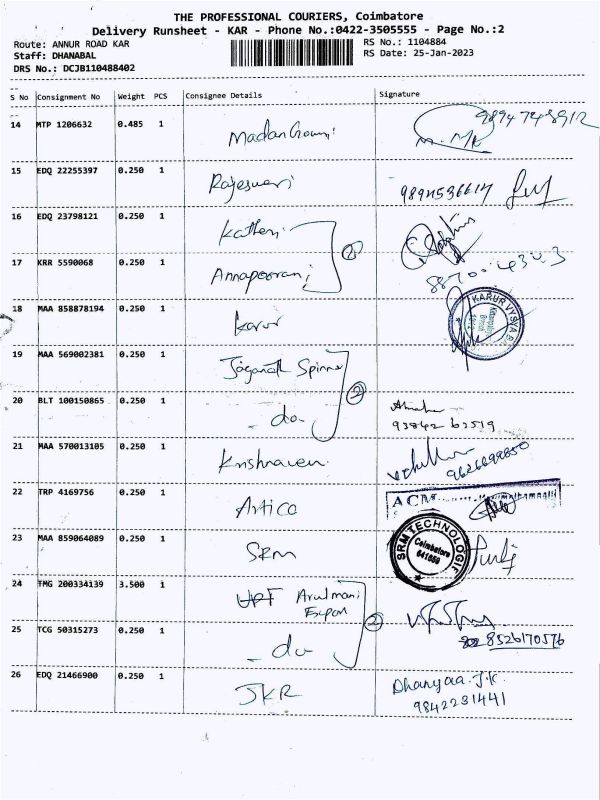 THE PROFESSIONAL COURIERS, Coimbatore
Delivery Runsheet - KAR - Phone No.:0422-3505555 - Page No.:2
Route: ANNUR ROAD KAR
RS No.: 1104884
Staff: DHANABAL
RS Date: 25-Jan-2023
DRS No.: DCJB110488402
S No Consignment No Weight PCS Consignee Details Signature
14 MTP 1206632 0.485 1
15 EDQ 22255397 0.250 1 Rajeswari
16 EDQ 23798121 0.250 1
17 KRR 5590068 0.250 1 Annapoorani
18 MAA 858878194 0.250 1 Karur KARUR VYSYA
19 MAA 569002381 0.250 1 Jaganath Spinne
2
20 BLT 100150865 0.250 1 - do -
21 MAA 570013105 0.250 1 9626699850
22 TRP 4169756 0.250 1 Artica ACM
23 MAA 859064089 0.250 1 SRM SRM TECHNOLOGIE Coimbatore 641659
24 TMG 200334139 3.500 1 Arulmani
2
25 TCG 50315273 0.250 1 - do 8526170576
26 EDQ 21466900 0.250 1 JKR Dhanyaa.J.K.
9842231441